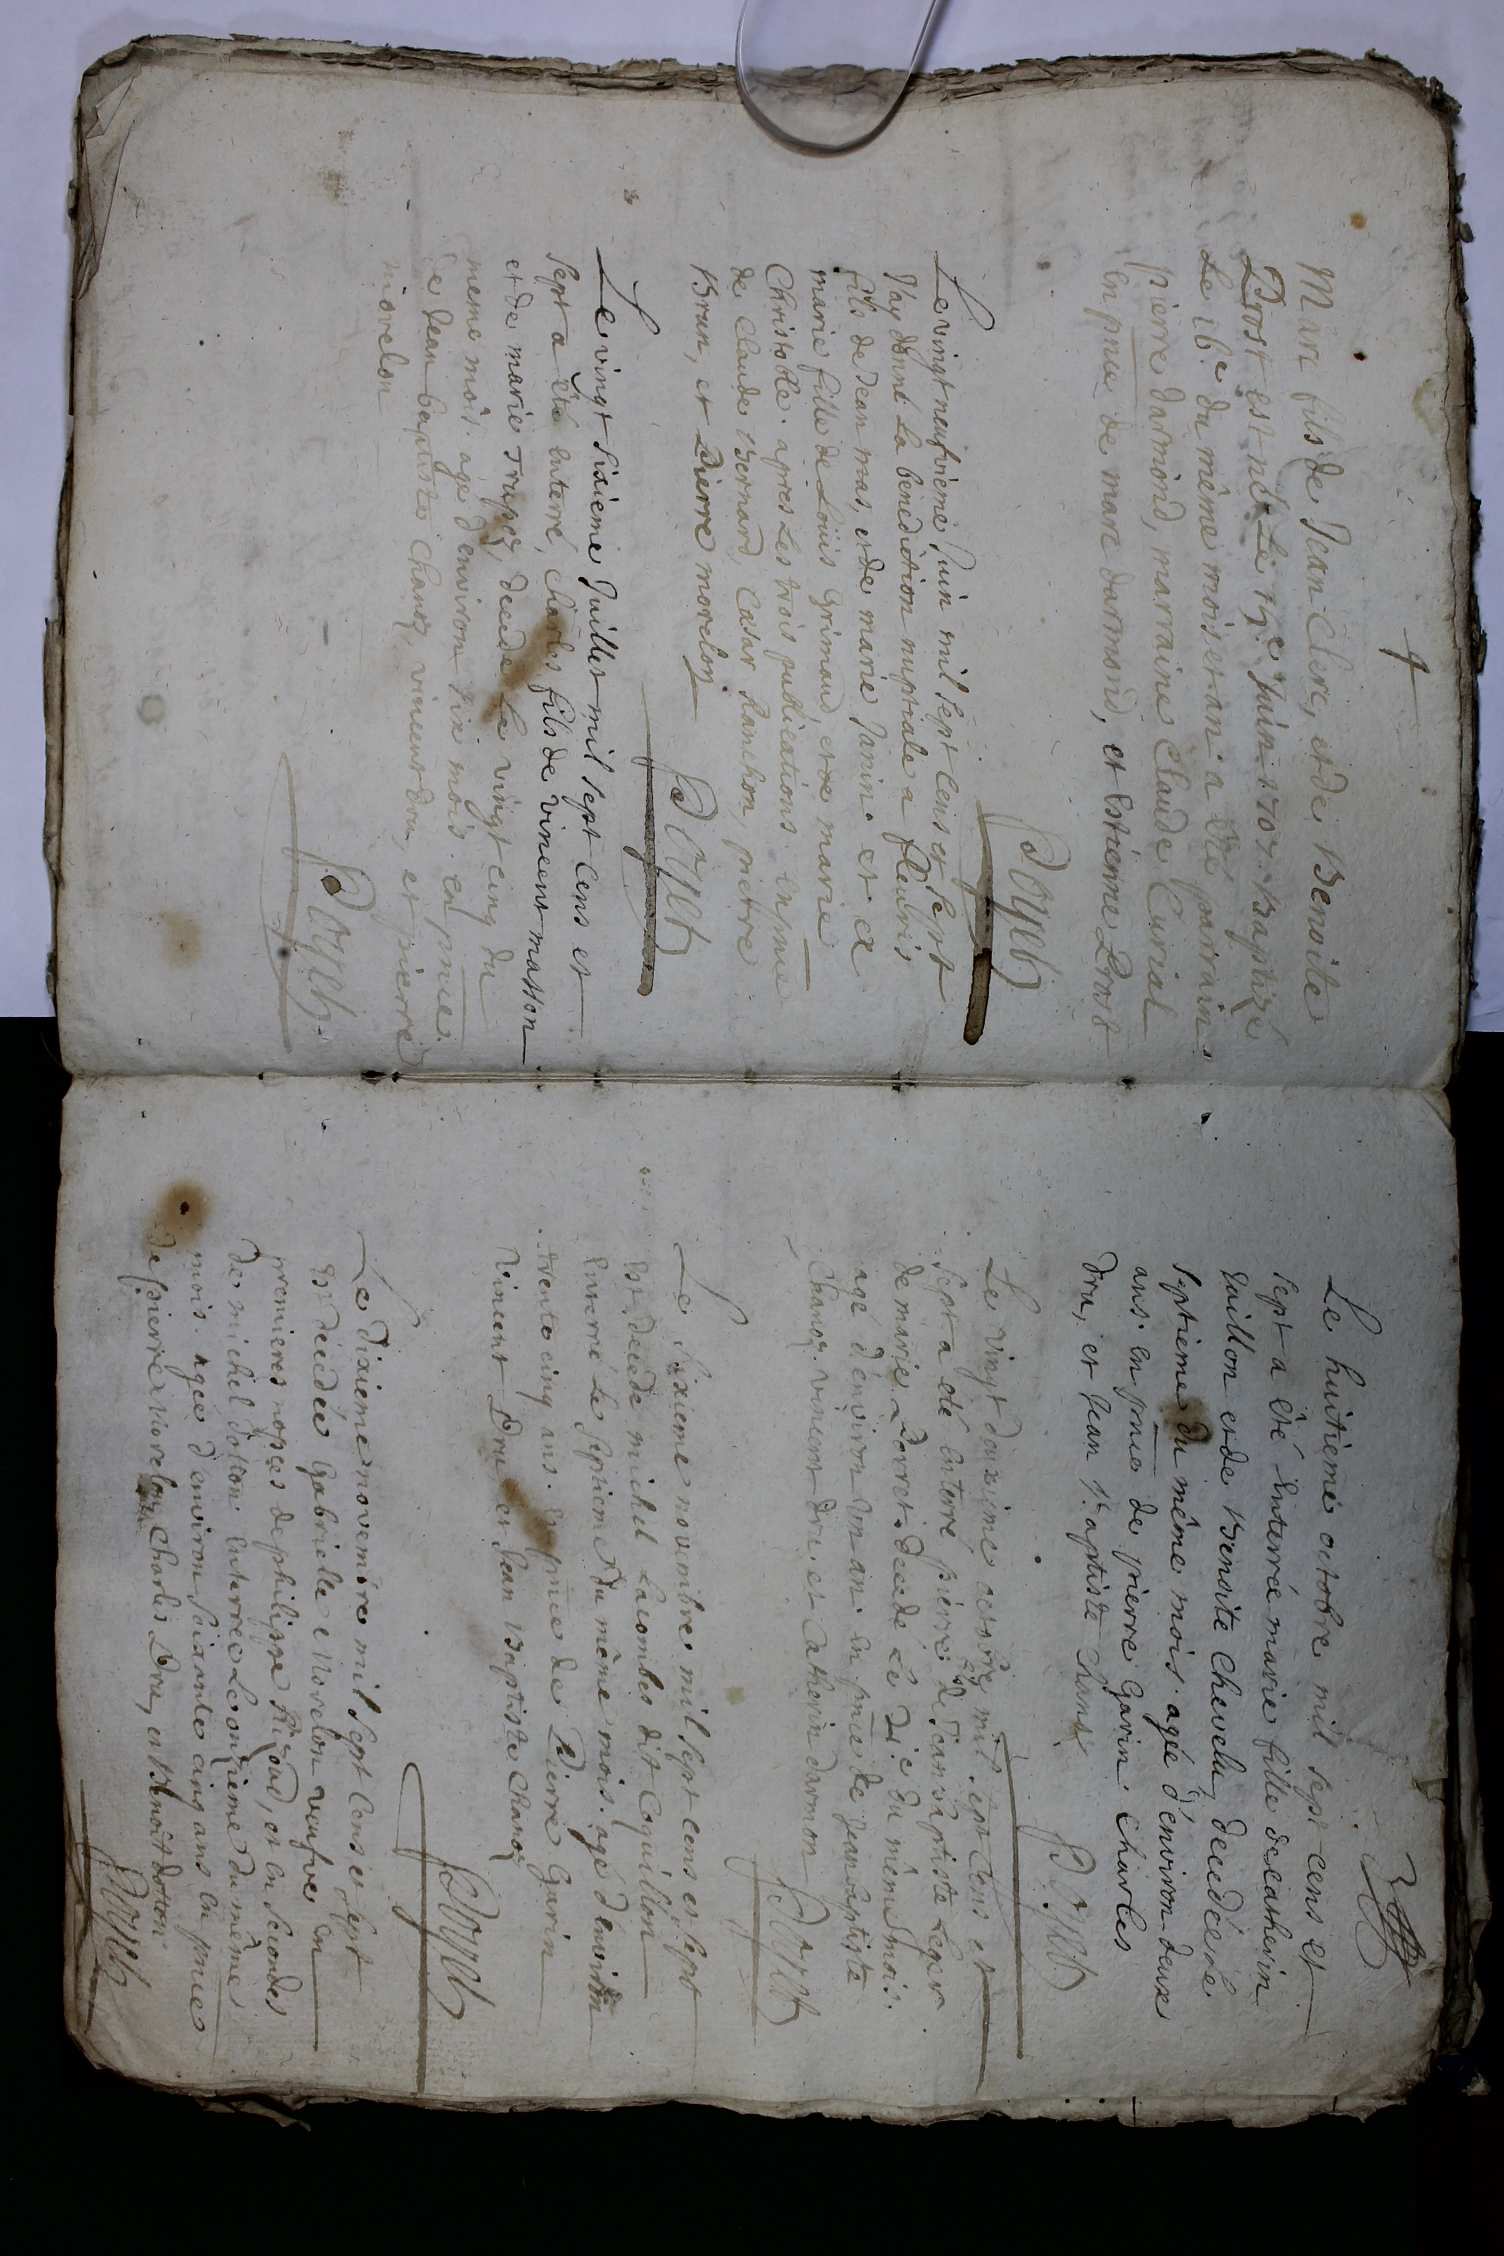 4
Marc fils de Jean Clerc, et de Benoite
Prost est né Le 15e Juin 1707. Baptizé
Le 16e du même mois et an. a été parrain
pierre darmond, marraine Claude Curial
en pnce de marc darmond, et Estienne Prost
Doyet
Le vingt neufvieme Juin mil sept Cens et sept
J'ay donné La benediction nuptiale a fleuris
fils de Jean mas, et de marie Janin. et a
marie fille de Loüis Grimaud, et de marie
Christoble. apres Les trois publications en pnce
de Claude Bernard, Cæsar Ranchon, pierre
Brun, et Pierre morelon
Doyet
Le vingt sixieme Juillet mil sept Cens et
sept a été enterré, Charles fils de vincent masson
et de marie decede Le vingt cinq du
meme mois. agé d'environ dix mois. en pnce
de Jean baptiste Chanoz, vincent dru, et pierre
morelon
Doyet
Le huitieme octobre mil sept cens et
sept a été Enterrée marie fille de Catherin
Guillon et de Benoite Chevelu, decedée le
septieme du même mois. agée d'environ deux
ans. en pnce de pierre Garin. Charles
dru, et Jean Baptiste Chanoz
Doyet
Le vingt deuxieme octobre mil sept Cens et
sept a eté Enterré pierre fils de Jean baptiste
de marie decedé Le 21e du même mois.
agé d'environ un an. en pnce de Jean baptiste
Chanoz. vincent dru. et Catherin darmon
Doyet
Le sixieme novembre mil sept cens et sept
est decedé michel Lacombe dit Coquillion
Enterré Le septieme du même mois. agé d'environ
trente cinq ans. en pnce de Pierre Garin
Vincent Dru et Jean Baptiste Chanoz
Doyet
Le dixieme novembre mil sept Cens et sept
est décédée Gabrielle Morelon veufve en
premieres nopces de philippe et en secondes
de michel dotton Enterrée Le onzieme du même
mois. agée d'environ soixante cinq ans en pnce
de pierre Morelon, Charles Dru, et Benoit dotton
Doyet